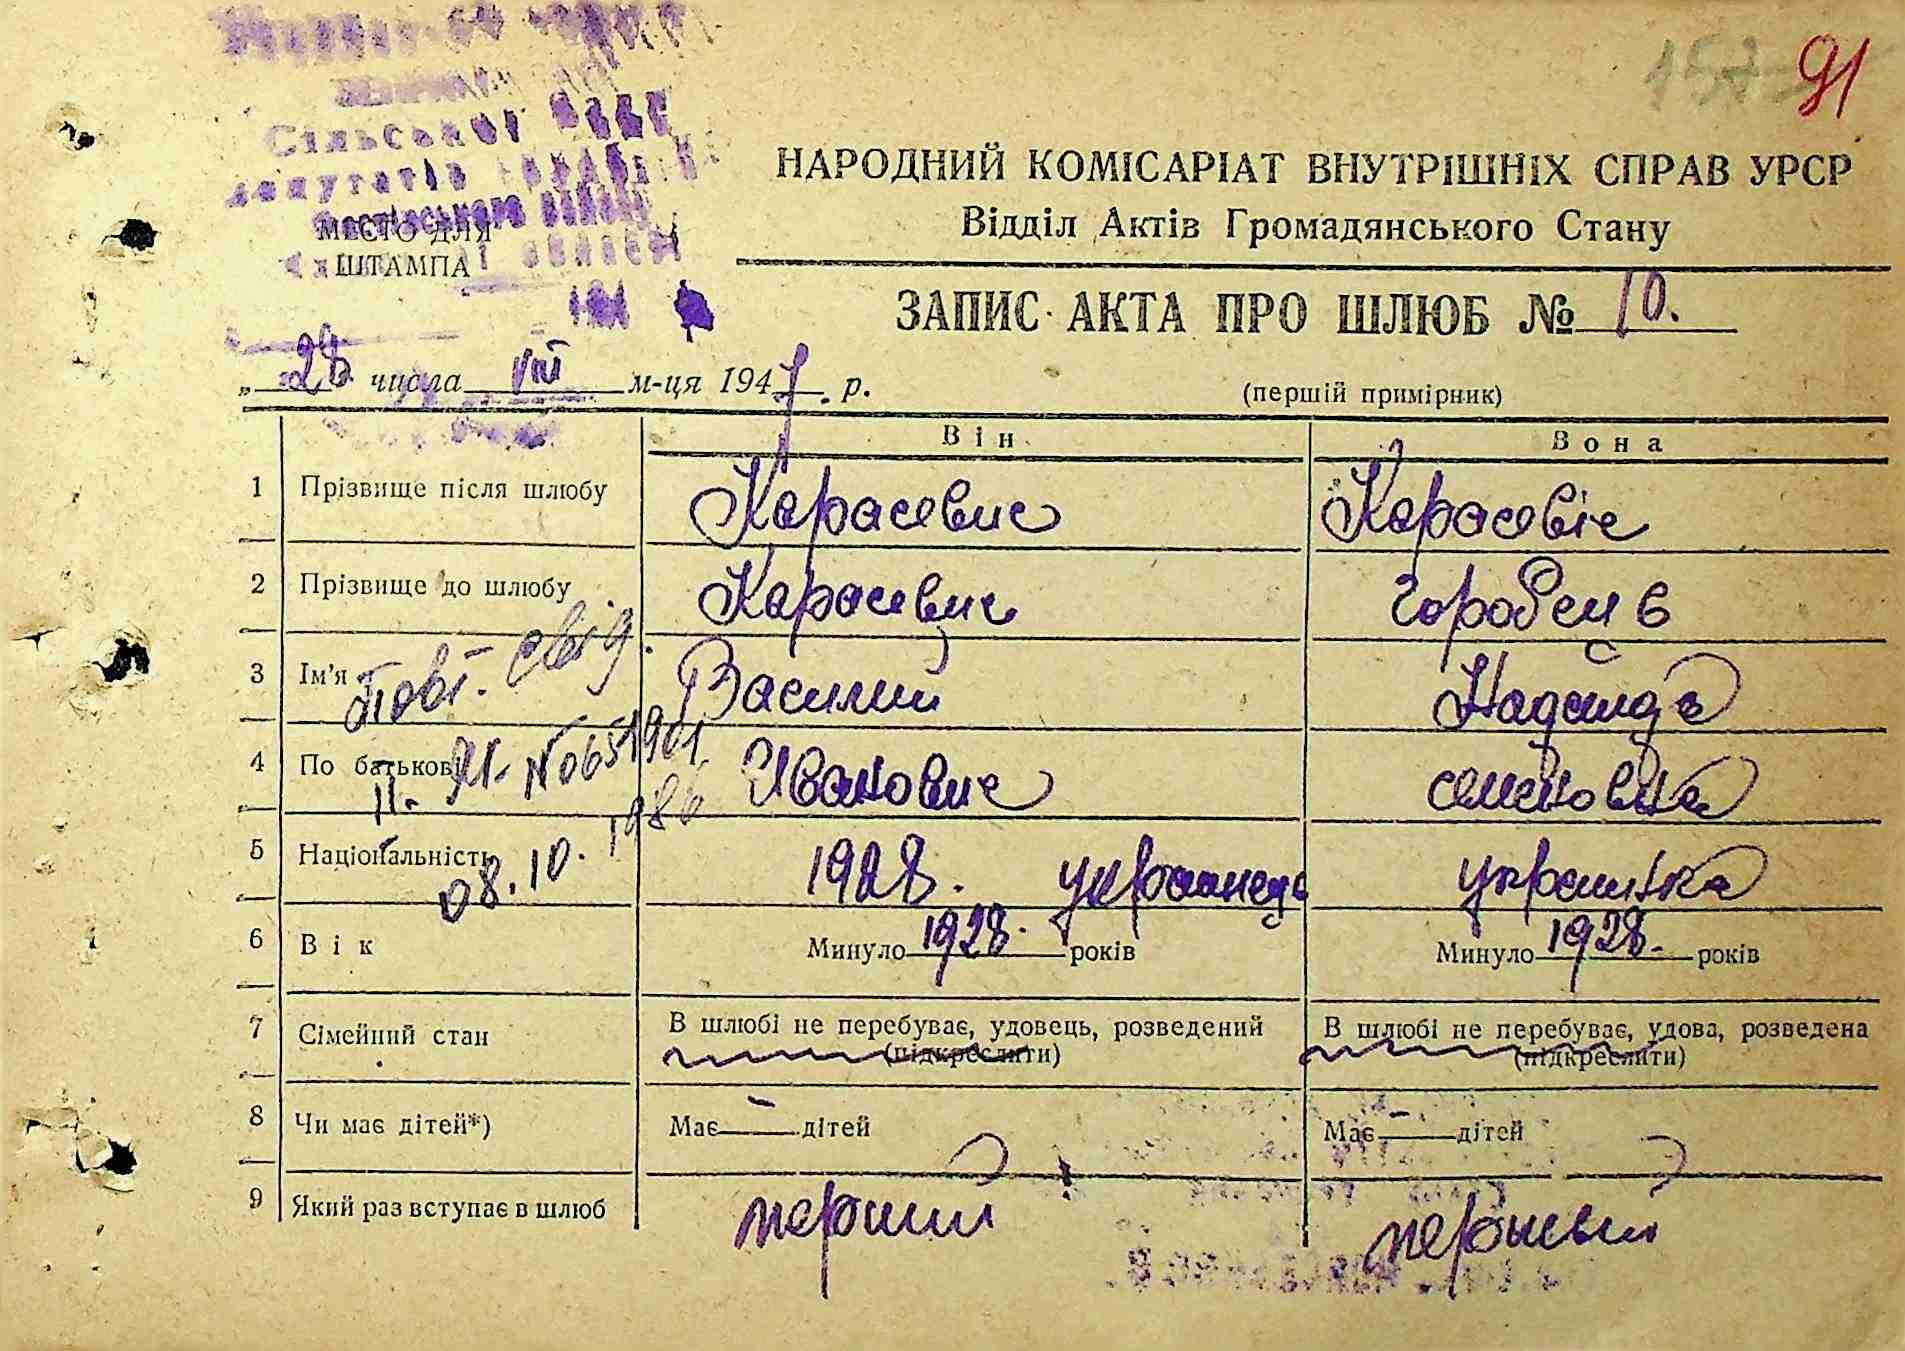 91
Сільської
депутатів
НАРОДНИЙ КОМІСАРІАТ ВНУТРІШНІХ СПРАВ УРСР
Відділ Актів Громадянського Стану
МІСТО ДЛЯ
ШТАМПА
194
ЗАПИС АКТА ПРО ШЛЮБ № 10.
(перший примірник)
„28 числа VIII м-ця 1947 р.
Він Вона
1 Прізвище після шлюбу Карасевич Карасевіч
2 Прізвище до шлюбу Карасевич Горобець
3 Ім'я Василий Надежда
4 По батькові Иванович Семеновна
5 Національність 1928. українець українка
6 Вік Минуло 1928. років Минуло 1928. років
7 Сімейний стан В шлюбі не перебуває, удовець, розведений В шлюбі не перебуває, удова, розведена
(підкреслити) (підкреслити)
8 Чи має дітей*) Має — дітей Має — дітей
9 Який раз вступає в шлюб перший первый
Повт. свід.
08.10.1986